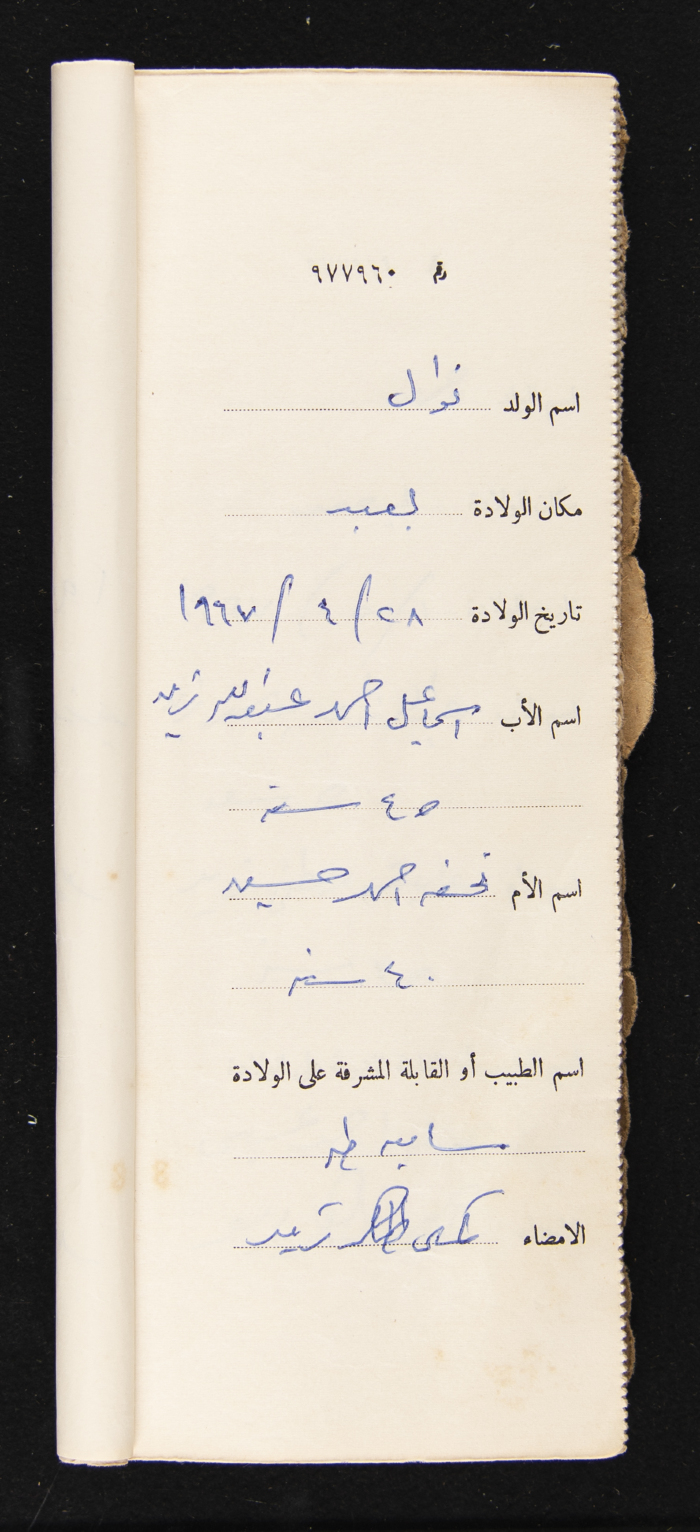 رقم ٩٧٧٩٦٠
اسم الولد نوال
مكان الولادة يعبد
تاريخ الولادة ٢٨ / ٤ / ١٩٦٧
اسم الأب اسماعيل احمد عبدالله زيد
٤٥ سنة
اسم الأم تحفه احمد حسين
٤٠ سنه
اسم الطبيب أو القابلة المشرفة على الولادة
ساميه طه
الامضاء زيد